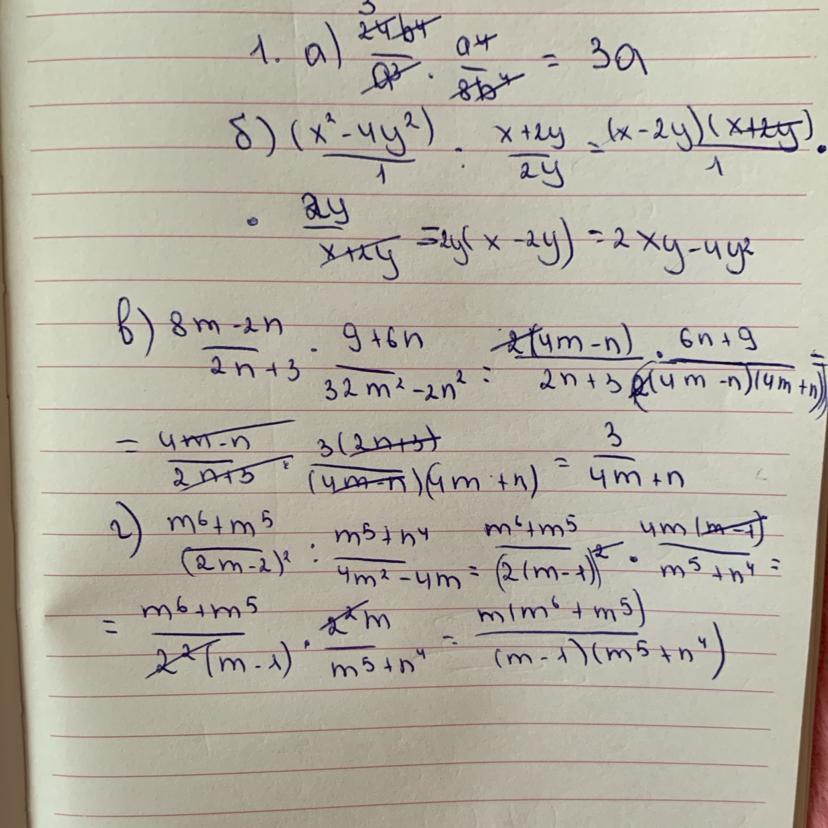 1. а) 24b⁴/a³ · a⁴/8b⁴ = 3a
3
б) (x²-4y²)/1 : (x+2y)/2y = (x-2y)(x+2y)/1 ·
· 2y/(x+2y) = 2y(x-2y) = 2xy-4y²
в) (8m-2n)/(2n+3) · (9+6n)/(32m²-2n²) = 2(4m-n)/(2n+3) · (6n+9)/(2(4m-n)(4m+n)) =
= (4m-n)/(2n+3) · 3(2n+3)/((4m-n)(4m+n)) = 3/(4m+n)
г) (m⁶+m⁵)/(2m-2)² : (m⁵+n⁴)/(4m²-4m) = (m⁶+m⁵)/(2(m-1))² · 4m(m-1)/(m⁵+n⁴) =
= (m⁶+m⁵)/(2²(m-1)) · 2²m/(m⁵+n⁴) = m(m⁶+m⁵)/((m-1)(m⁵+n⁴))